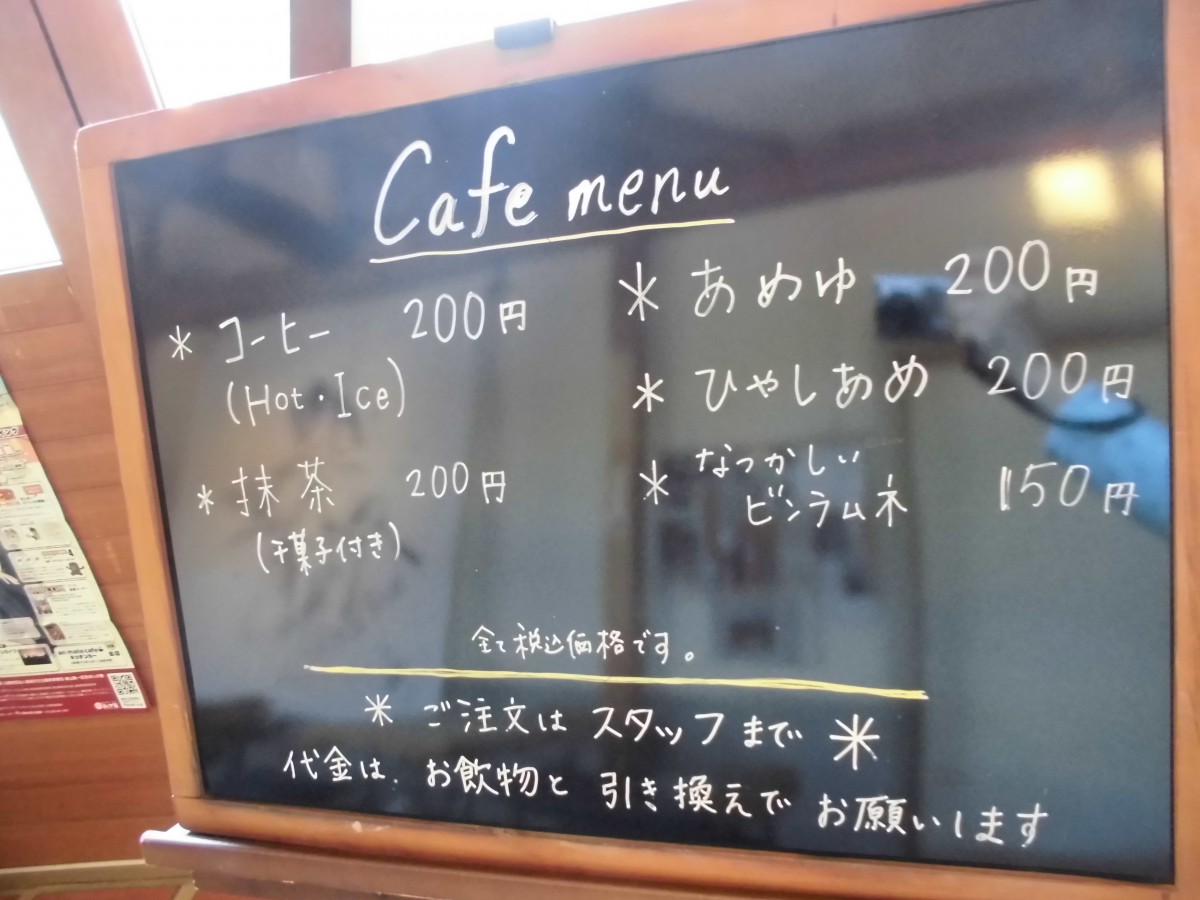 Cafe menu
* コーヒー 200円
(Hot・Ice)
* 抹茶 200円
(干菓子付き)
* あめゆ 200円
* ひやしあめ 200円
* なつかしい
ビンラムネ 150円
全て税込価格です。
* ご注文は スタッフまで *
代金は、お飲物と 引き換えで お願いします